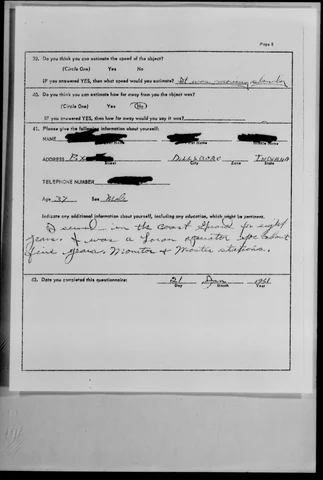 Page 8
39. Do you think you can estimate the speed of the object?
(Circle One) Yes No
IF you answered YES, then what speed would you estimate? It was moving slowly
40. Do you think you can estimate how far away from you the object was?
(Circle One) Yes No
IF you answered YES, then how far away would you say it was?
41. Please give the following information about yourself:
NAME
Last Name First Name Middle Name
ADDRESS Indiana
Street City Zone State
TELEPHONE NUMBER
Age 37 Sex Male
Indicate any additional information about yourself, including any education, which might be pertinent.
I served in the coast Guard for eight
years. I was a Loran operator for about
five years. Monitor & Master stations.
42. Date you completed this questionnaire: 21 Jan
Day Month Year